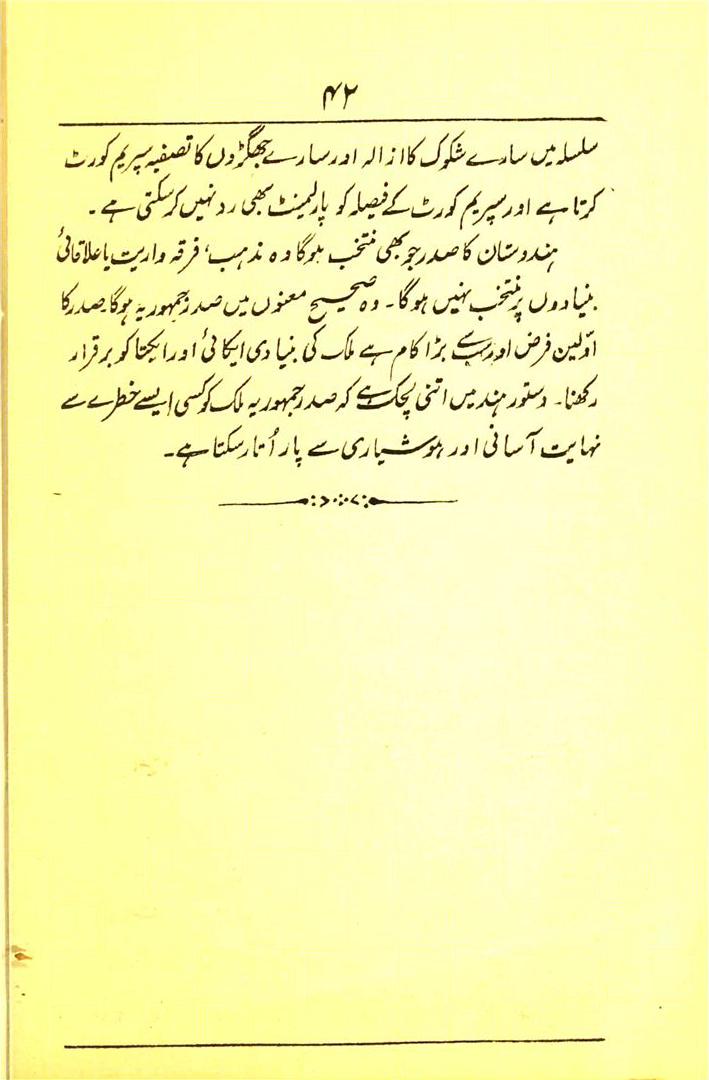 ۴۲
سلسلہ میں سارے شکوک کا ازالہ اور سارے جھگڑوں کا تصفیہ سپریم کورٹ
کرتا ہے اور سپریم کورٹ کے فیصلہ کو پارلیمنٹ بھی رد نہیں کر سکتی ہے۔
ہندوستان کا صدر جو بھی منتخب ہوگا وہ مذہب، فرقہ واریت یا علاقائی
بنیادوں پر منتخب نہیں ہوگا۔ وہ صحیح معنوں میں صدر جمہوریہ ہوگا۔ صدر کا
اوّلین فرض اور سب سے بڑا کام ہے ملک کی بنیادی ایکائی اور ایکتا کو برقرار
رکھنا۔ دستور ہند میں اتنی لچک ہے کہ صدر جمہوریہ ملک کو کسی ایسے خطرے سے
نہایت آسانی اور ہوشیاری سے پار اُتار سکتا ہے۔